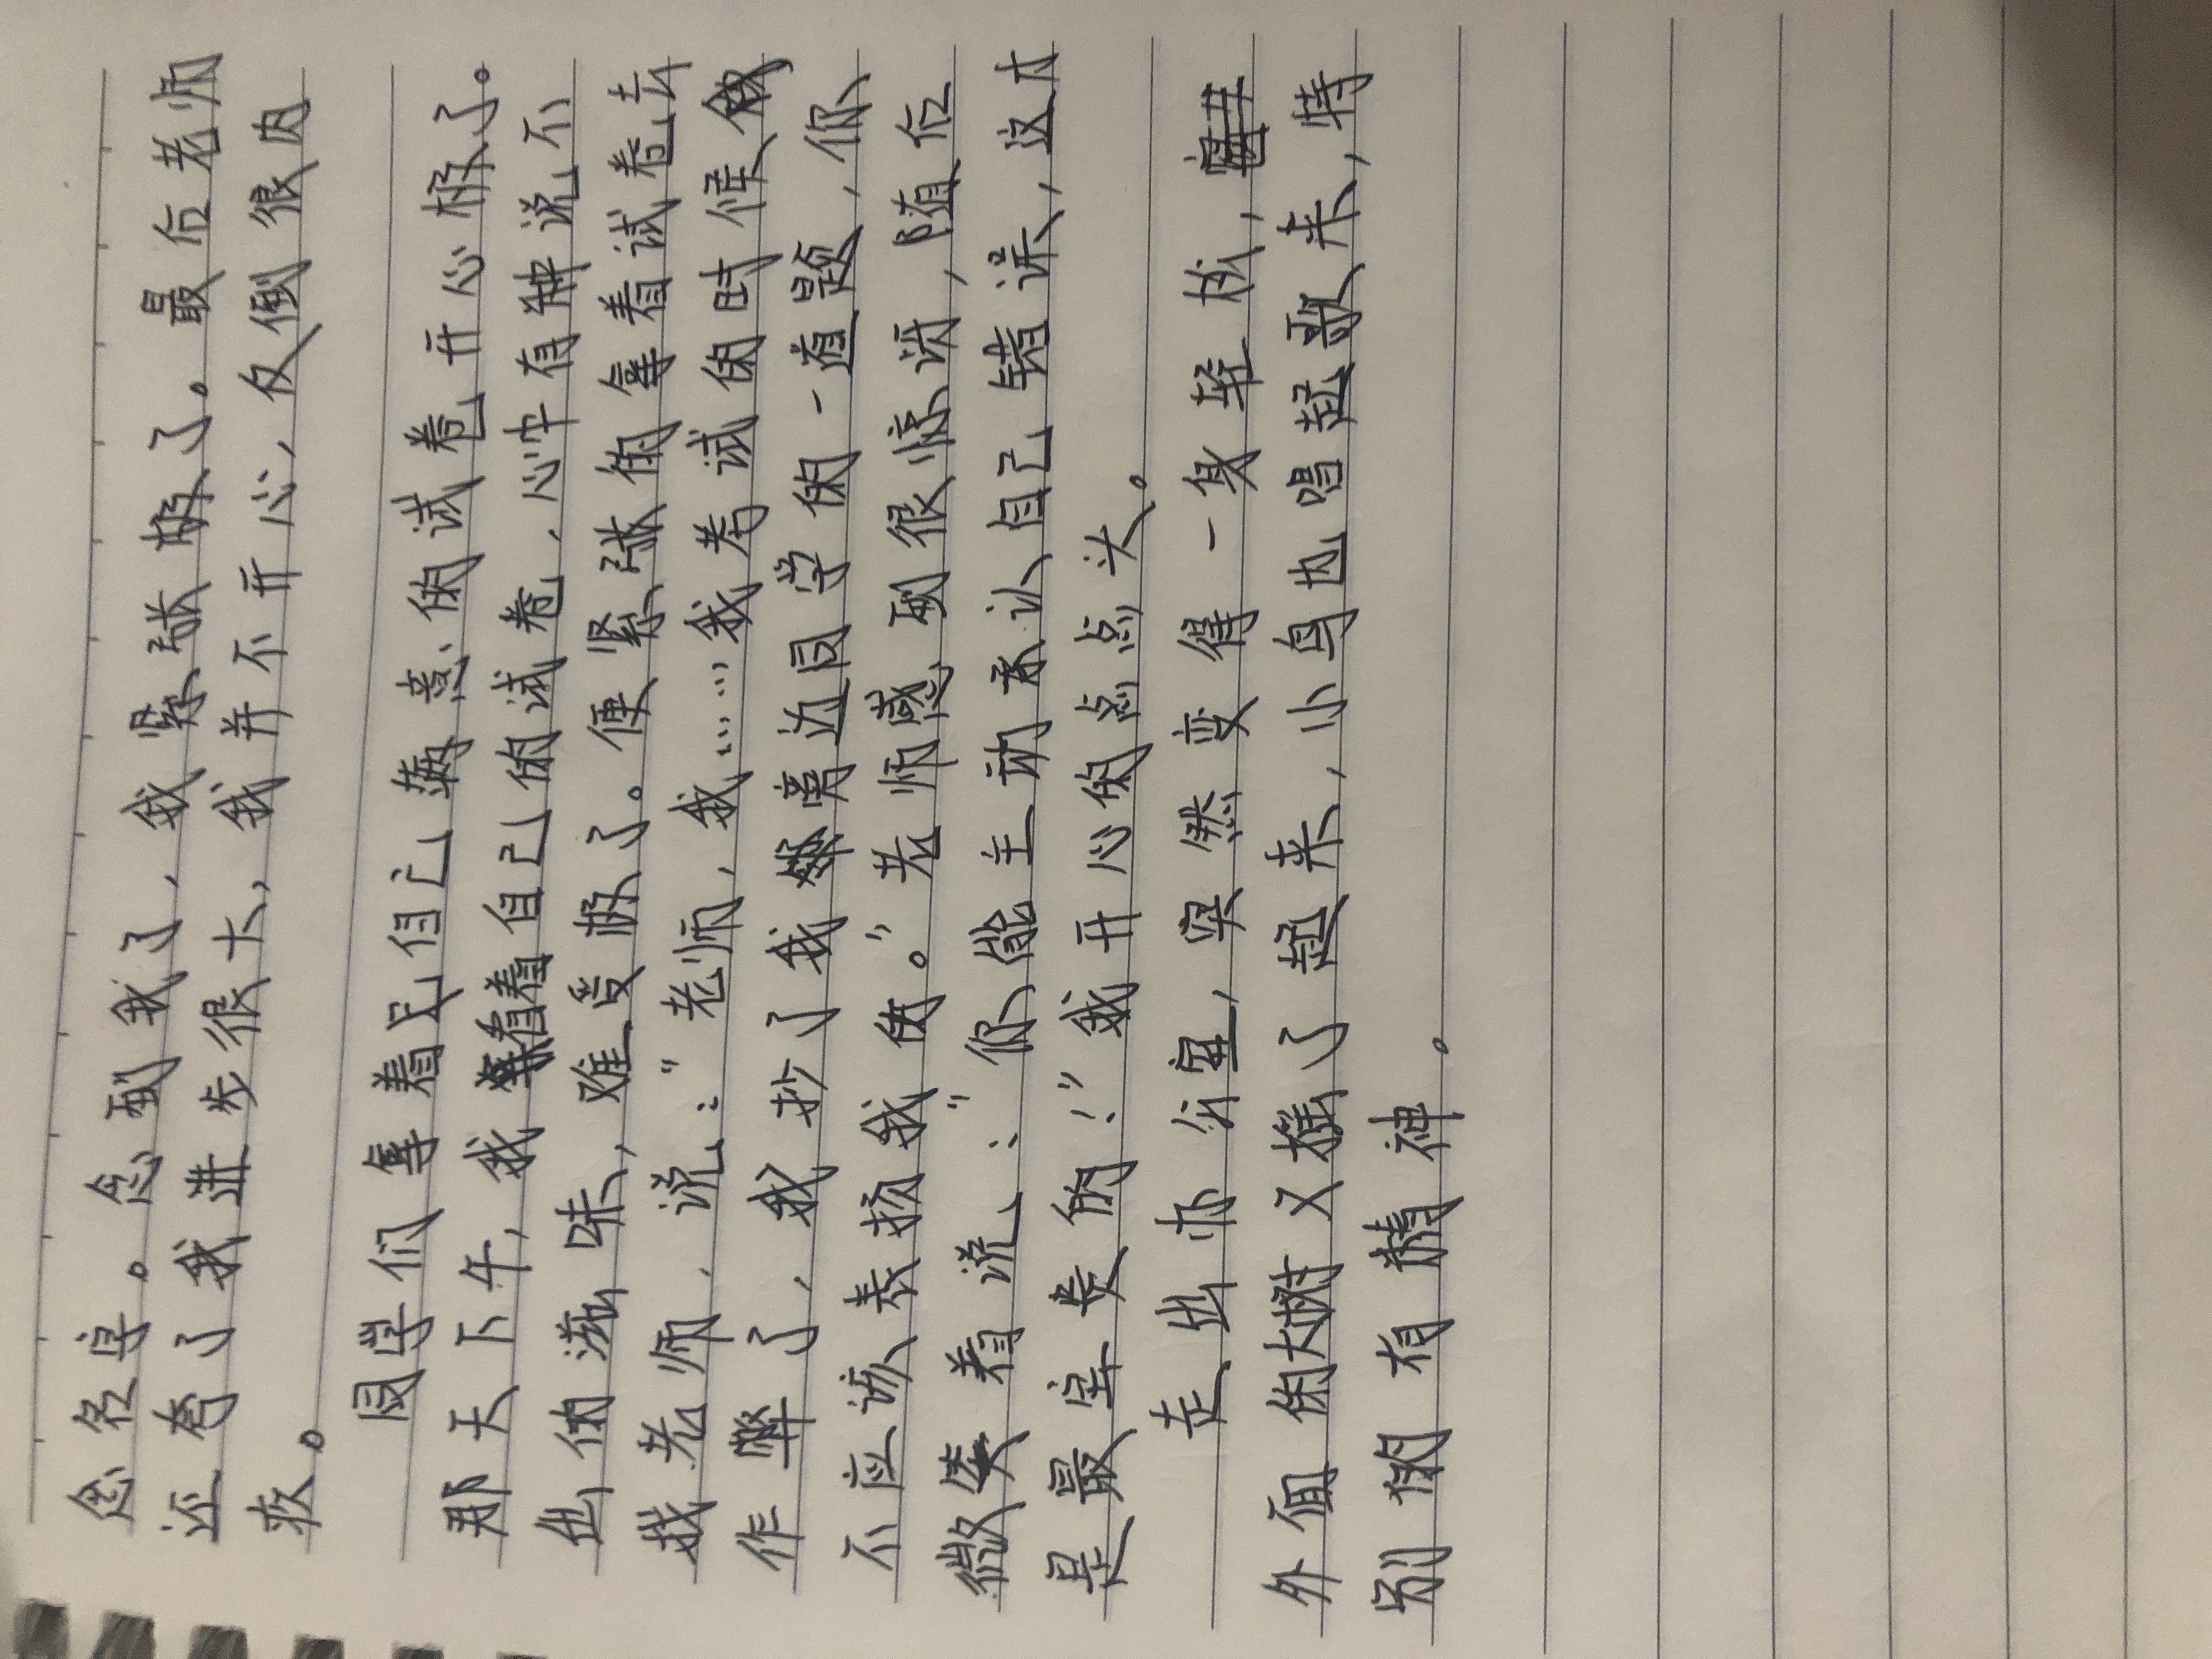 念名字。念到我了，我紧张极了。最后老师
还夸了我进步很大，我并不开心，反倒很内
疚。
同学们拿着自己满意的试卷开心极了。
那天下午，我看着自己的试卷，心中有种说不
出的滋味，难受极了。便紧张的拿着试卷去
找老师，说：“老师，我……，我考试的时候
作弊了，我抄了我离边同学的一道题，你
不应该表扬我的。”老师感到很惊讶，随后
微笑着说：“你能主动承认自己错误，这才
是最宝贵的！”我开心的点点头。
走出办公室，突然变得一身轻松，
外面的大树又摇了起来，小鸟也唱起歌来，特
别的有精神.